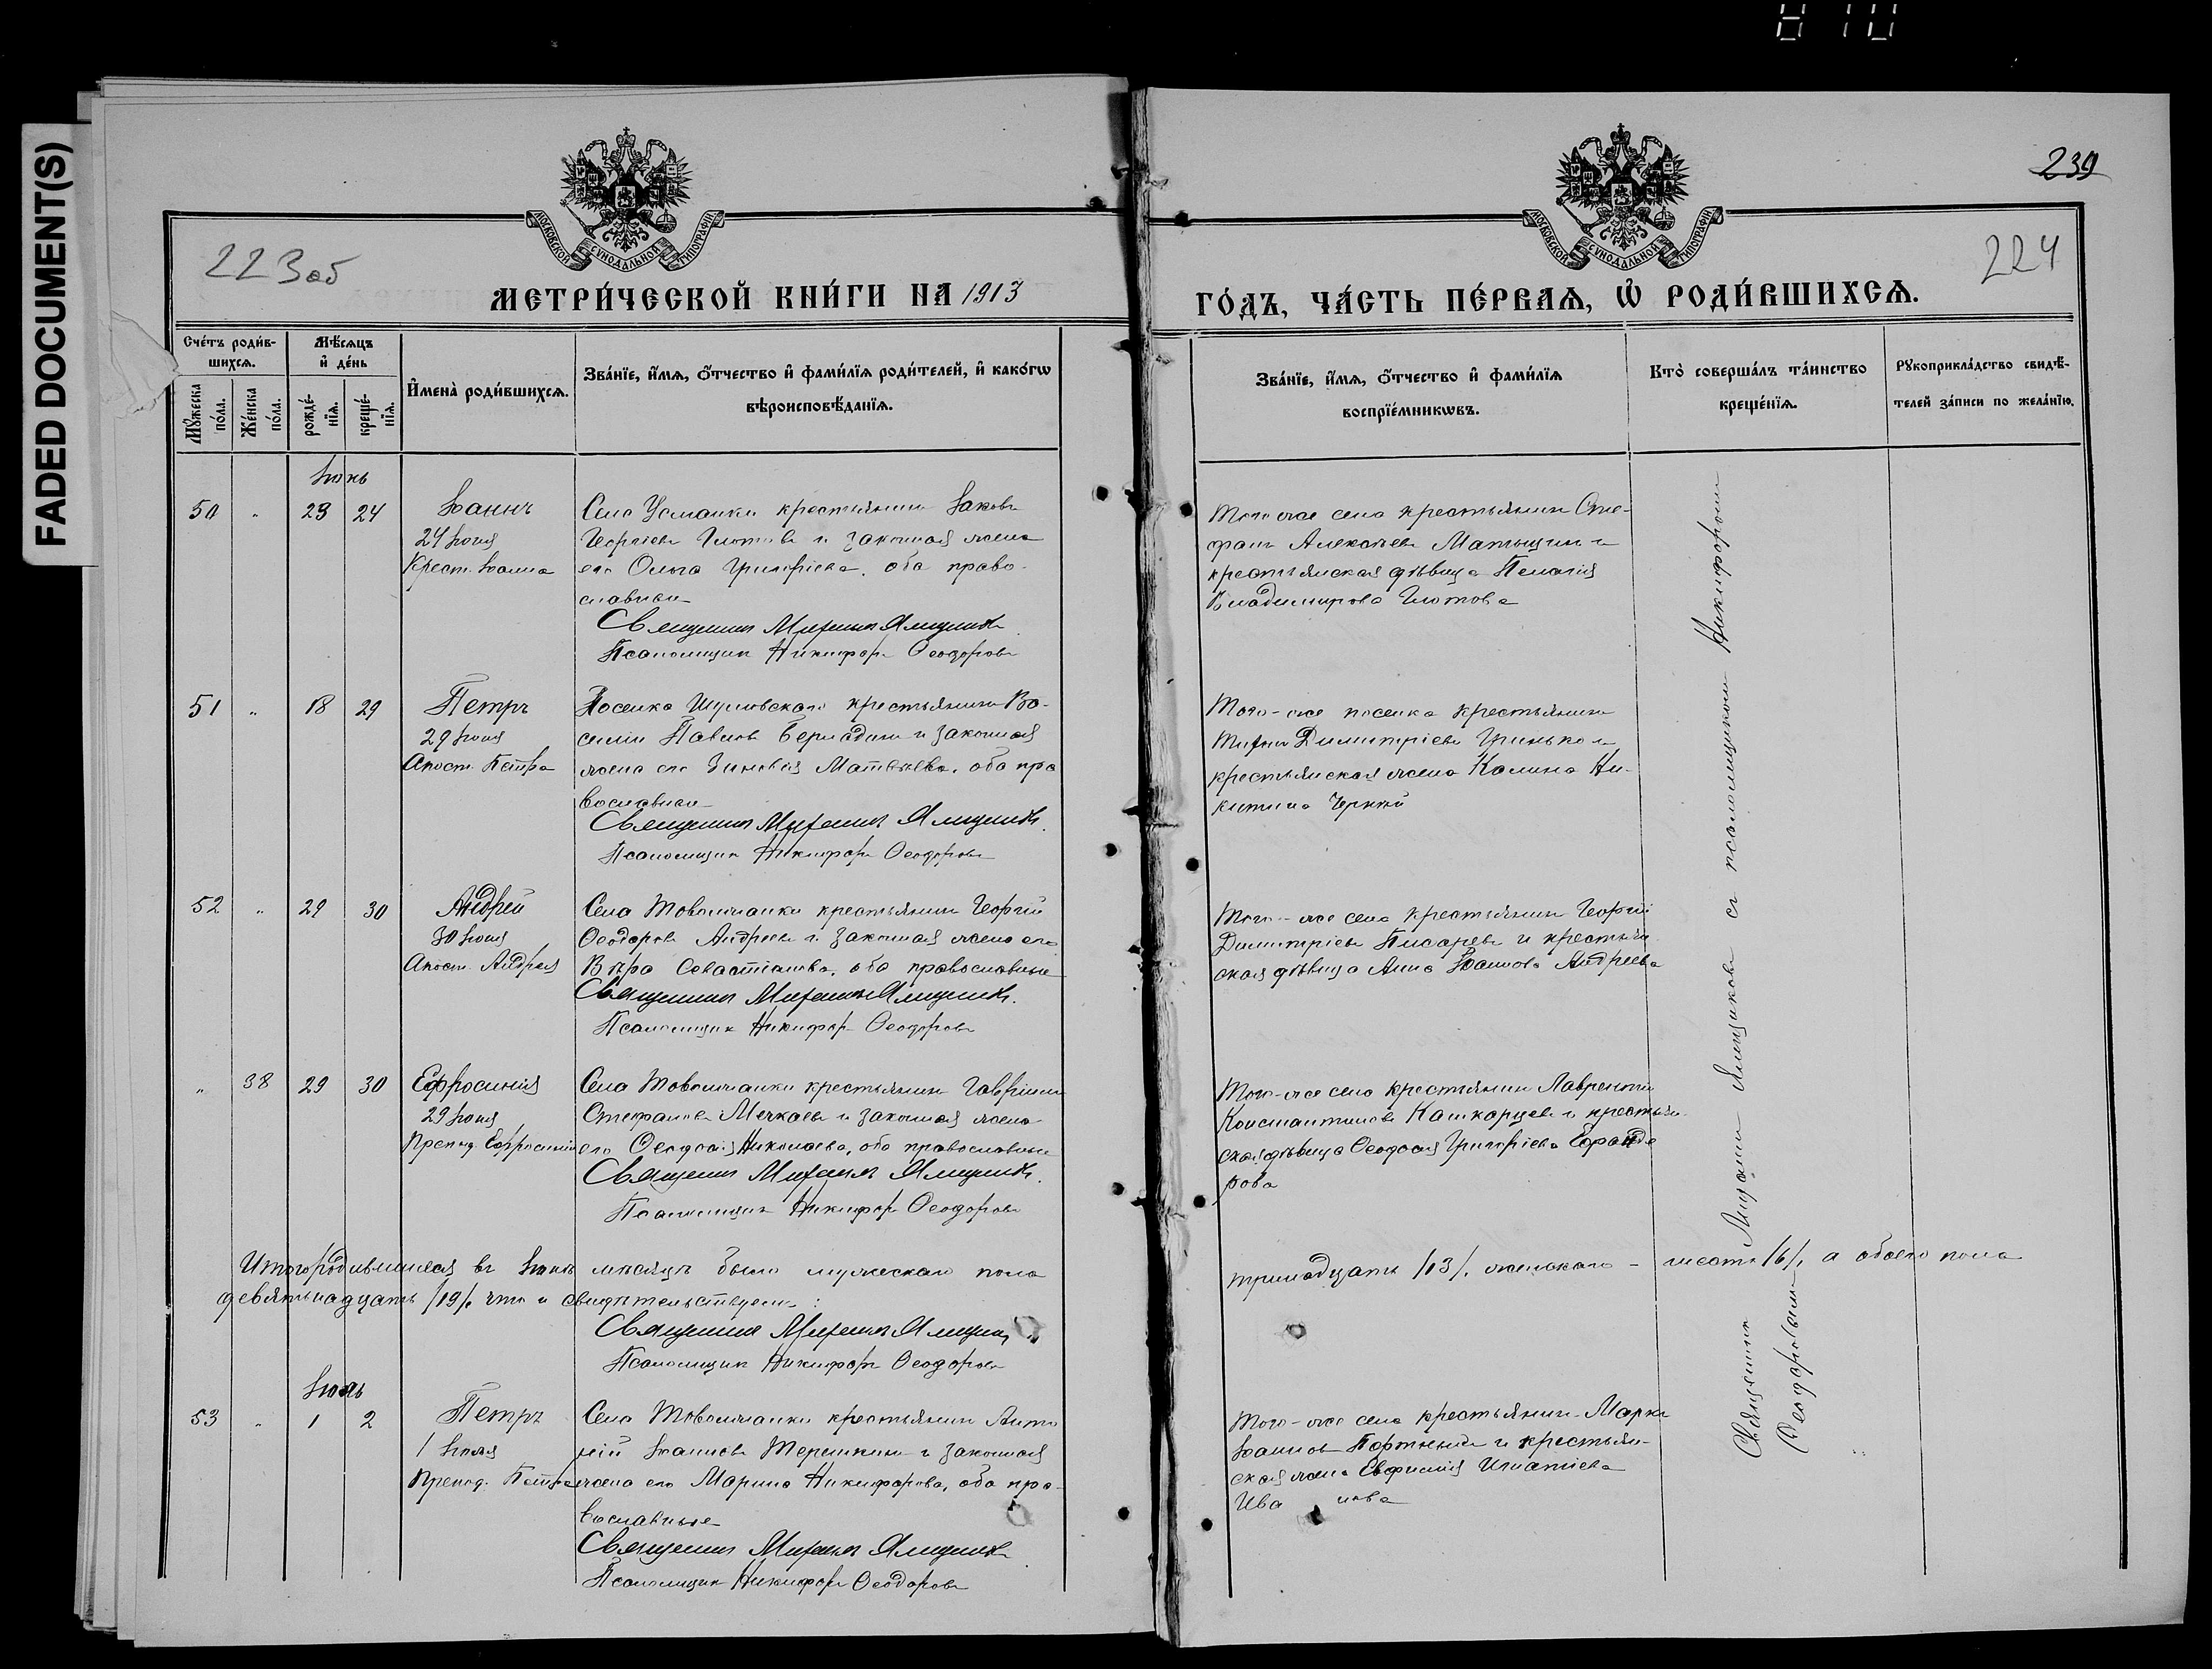 FADED DOCUMENT(S)
239
МОСКОВСКОЙ СѴНОДАЛЬНОЙ ТИПОГРАФІИ
223об
МЕТРИ́ЧЕСКОЙ КНИ́ГИ НА 1913
Сче́тъ роди́в-
шихсѧ.
Мꙋ́жеска по́ла.
Же́нска по́ла.
Мѣ́сѧцъ
и҆ де́нь
рожде́-нїѧ.
креще́-нїѧ.
И҆мена̀ роди́вшихсѧ.
Зва́нїе, и҆́мѧ, ѻ҆́тчество и҆ фами́лїѧ роди́телей, и҆ како́гѡ
вѣроисповѣ́данїѧ.
Іюнь
50 " 23 24 Іоаннъ
24 Іюня
Крест. Іоанна
Села Усманки крестьянинъ Іаковъ
Георгіевъ и законная жена
его Ольга Григоріева, оба право-
славные
Священникъ Михаилъ
Псаломщикъ Никифоръ Ѳеодоровъ
51 " 18 29 Петръ
29 Іюня
Апост. Петра
Поселка крестьянинъ Ва-
силій Павловъ и законная
жена его Зиновія Матвѣева, оба пра
вославные
Священникъ Михаилъ
Псаломщикъ Никифоръ Ѳеодоровъ
52 " 29 30 Андрей
30 Іюня
Апост. Андрея
Села крестьянинъ Георгій
Ѳеодоровъ Андреевъ и законная жена его
Вѣра Севастіанова, оба православные
Священникъ Михаилъ
Псаломщикъ Никифоръ Ѳеодоровъ
" 38 29 30 Ефросинія
29 Іюня
Препод. Ефросиніи
Села крестьянинъ Гавріилъ
Стефановъ и законная жена
его Ѳеодосія Николаева, оба православные
Священникъ Михаилъ
Псаломщикъ Никифоръ Ѳеодоровъ
Итого родившихся въ Іюнѣ мѣсяцѣ было мужескаго пола
девятнадцать /19/. что и свидѣтельствуемъ:
Священникъ Михаилъ
Псаломщикъ Никифоръ Ѳеодоровъ
Іюль
53 " 1 2 Петръ
1 Іюля
Препод. Петра
Села крестьянинъ Анто
ній Іоанновъ Терешкинъ и законная
жена его Марина Никифорова, оба пра-
вославные
Священникъ Михаилъ
Псаломщикъ Никифоръ Ѳеодоровъ
МОСКОВСКОЙ СѴНОДАЛЬНОЙ ТИПОГРАФІИ
224
ГО́ДЪ, ЧА́СТЬ ПЕ́РВАѦ, Ѡ҆ РОДИ́ВШИХСѦ.
Зва́нїе, и҆́мѧ, ѻ҆́тчество и҆ фами́лїѧ
воспрїе́мникѡвъ.
Кто̀ соверша́лъ та́инство
креще́нїѧ.
Рꙋкоприкла́дство свидѣ́-
телей за́писи по жела́нїю.
Того же села крестьянинъ Сте-
фанъ Алексѣевъ и
крестьянская дѣвица Пелагія
Владимирова
Того-же поселка крестьянинъ
Димитріевъ Гринько и
крестьянская жена Калина Ни-
китина
Того-же села крестьянинъ Георгій
Димитріевъ Писаревъ и крестьян
ская дѣвица Анна Іоаннова Андреева
Того-же села крестьянинъ Лаврентій
Константиновъ Кашкарцевъ и крестьян-
ская дѣвица Ѳеодосія Григоріева
рова
тринадцать /13/. женскаго - шесть /6/, а обоего пола
Того-же села крестьянинъ Маркъ
Іоанновъ Портновъ и крестьян-
ская жена Евфимія Игнатіева
Ива нова
Священникъ Михаилъ съ псаломщикомъ Никифоромъ
Ѳеодоровымъ